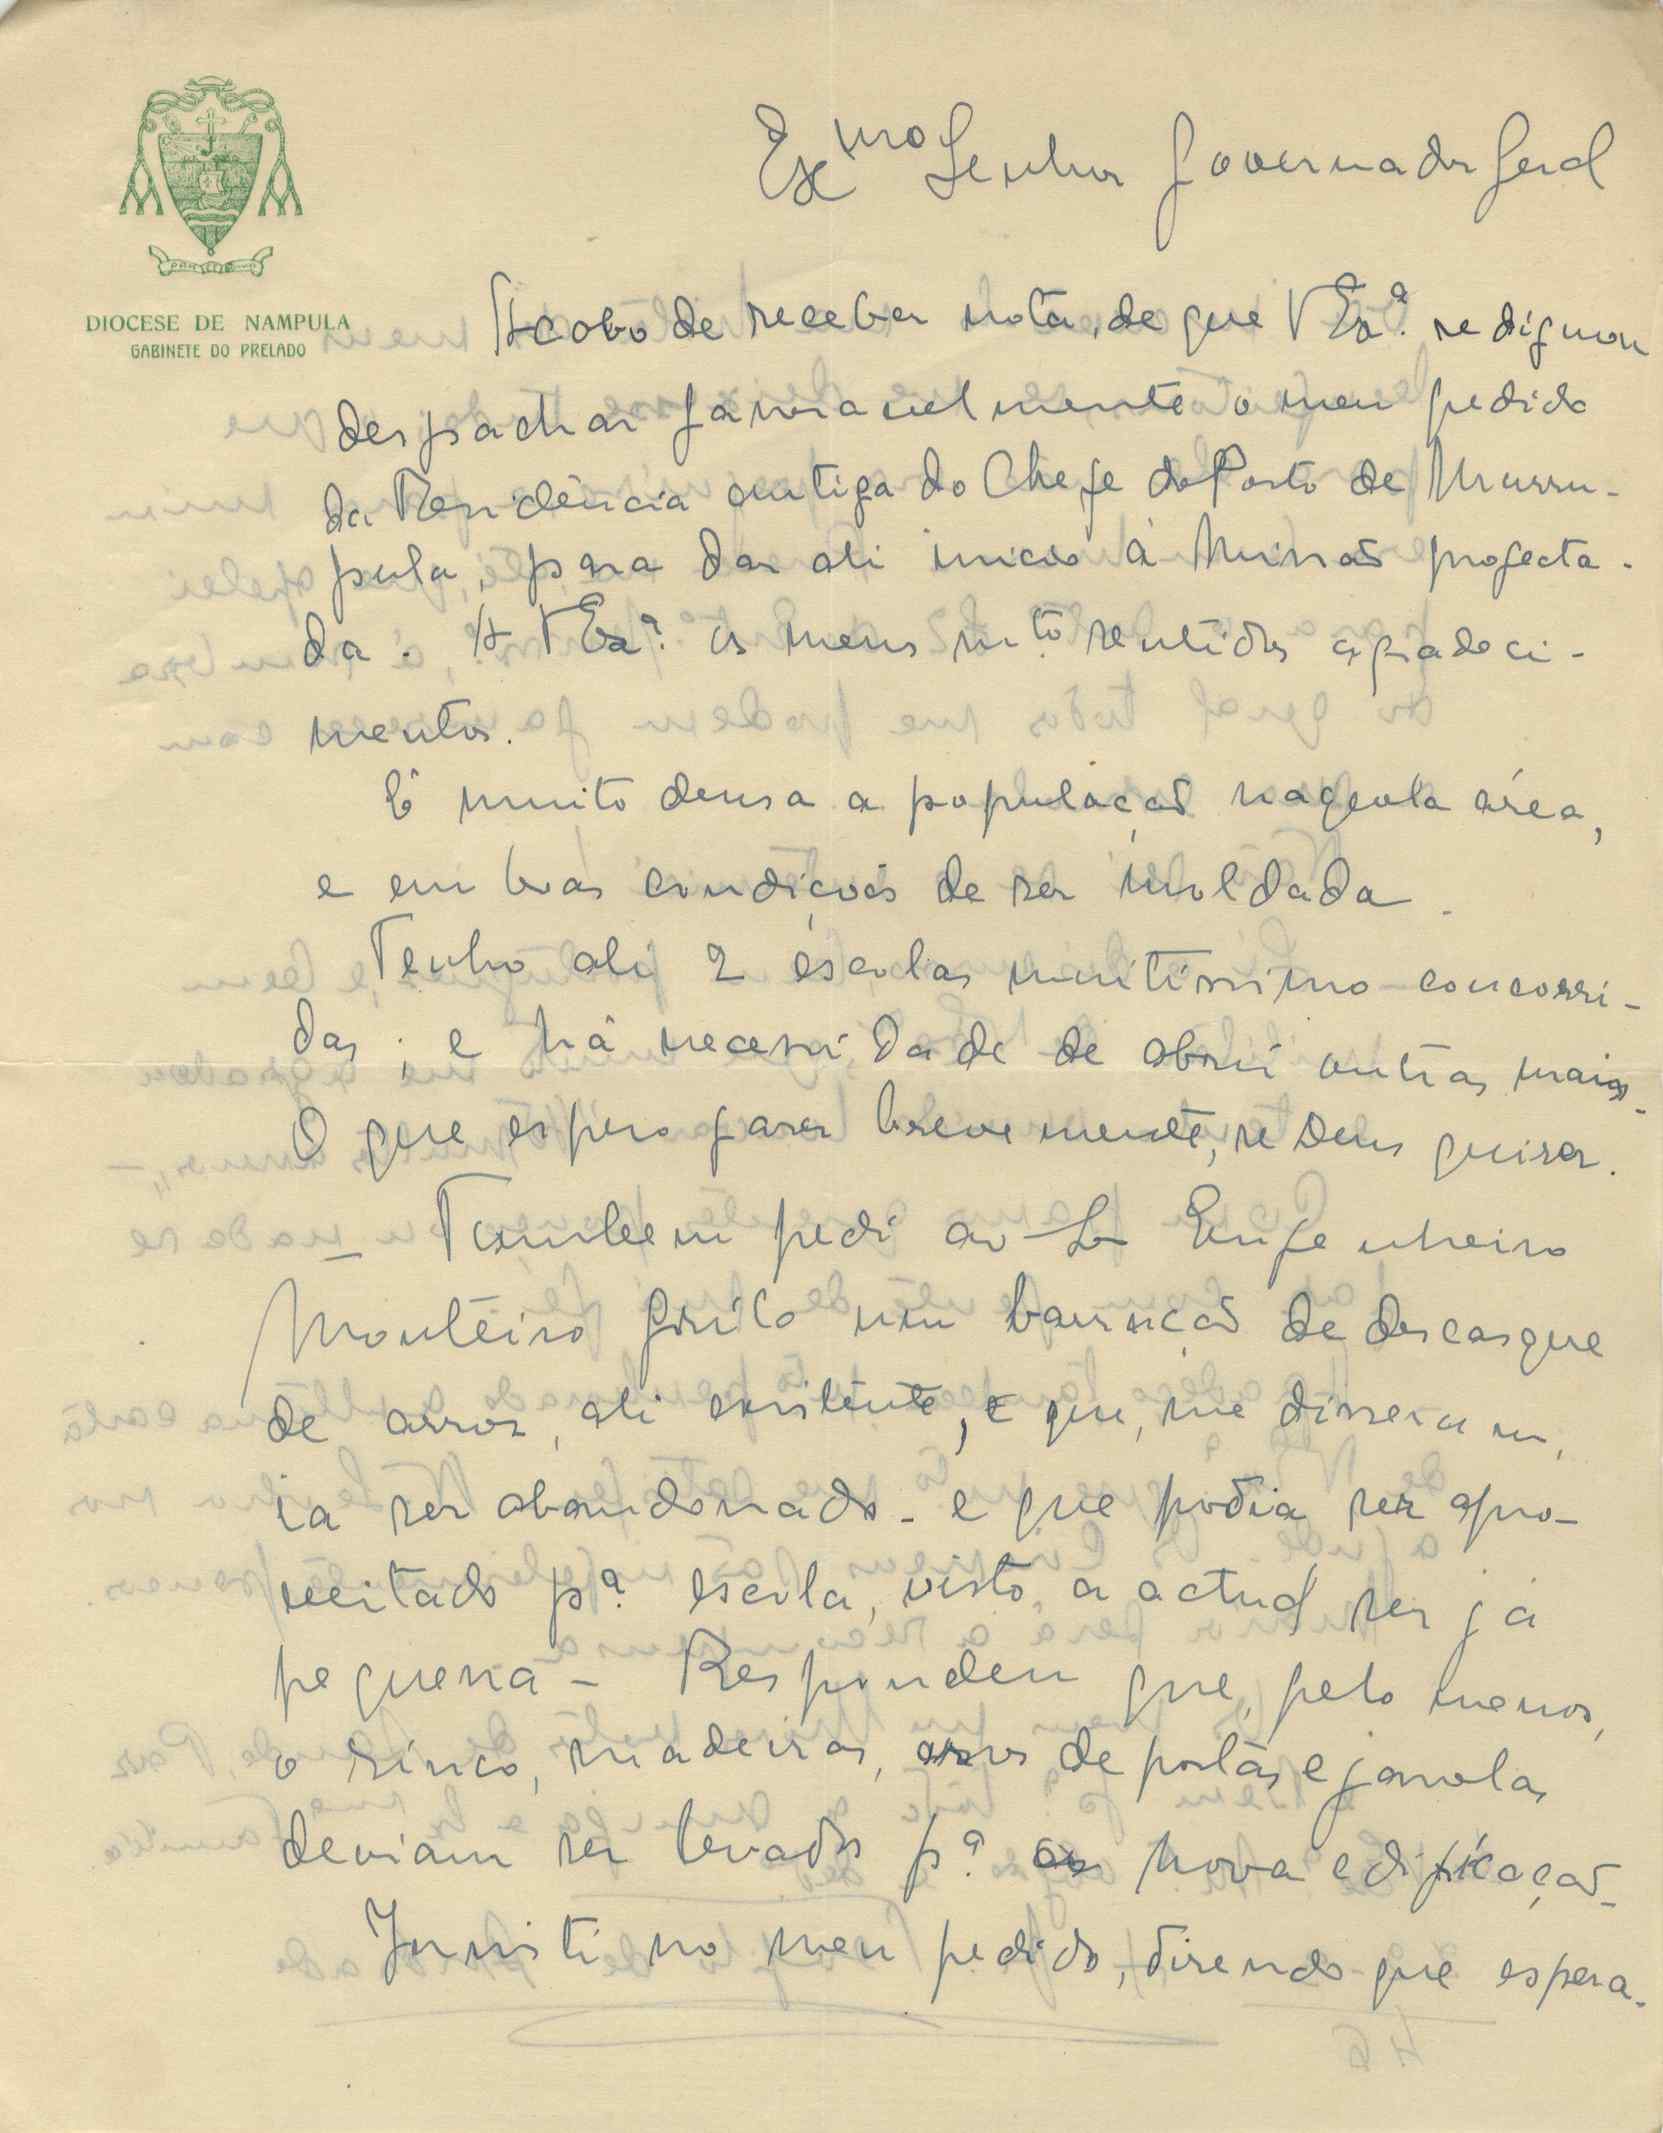 DIOCESE DE NAMPULA
GABINETE DO PRELADO
Exmo Senhor Governador Geral
Acabo de receber nota, de que V Exª. se dignou
despachar favoravelmente o meu pedido
da Residência antiga do Chefe do Posto de Murru-
pula, para dar ali inicio á Missão projecta-
da. A V Exª. os meus mtº sentidos agradeci-
mentos.
É muito densa a população naquela área,
e em boas condições de ser moldada.
Tenho ali 2 escolas muitíssimo concorri-
das; e há necessidade de abrir outras mais.
O que espero fazer brevemente, se Deus quiser.
— Tambem pedi ao Sr Engenheiro
Monteiro Grilo um barracão de descasque
de arroz, ali existente, e que, me disseram,
ia ser abandonado - e que podia ser apro-
veitado pª escola, visto a actual ser já
pequena - Respondeu que, pelo menos,
o zinco, madeiras, aros de portas e janelas
deviam ser levados pª a nova edificação -
Insisti no meu pedido, dizendo que espera-